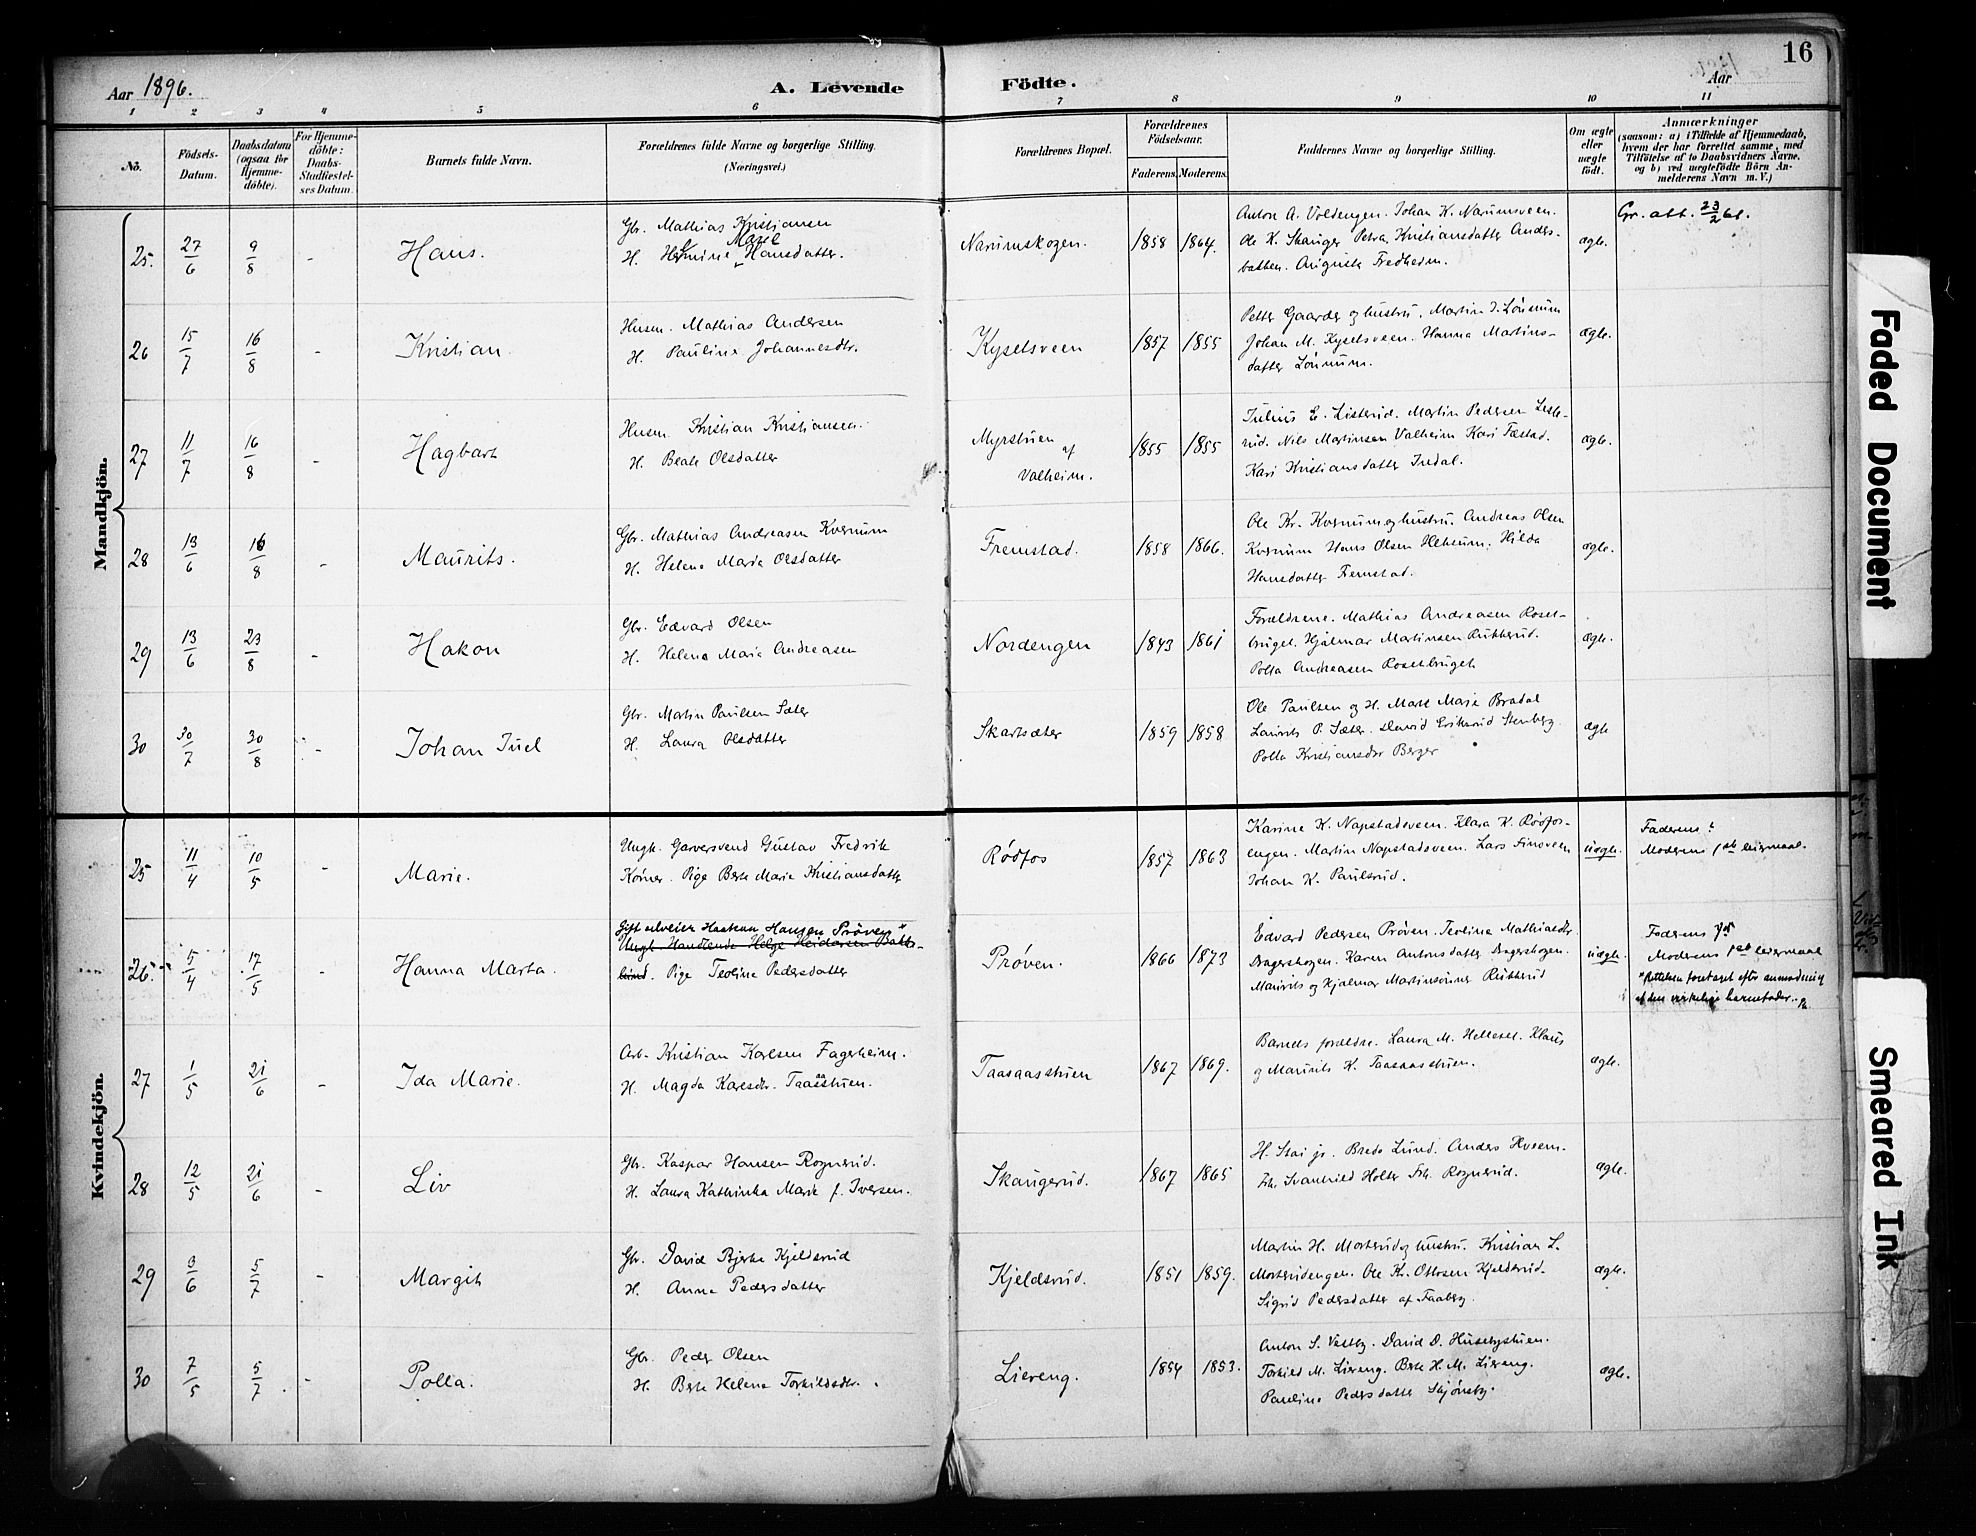 16
Aar 1896. A. Levende Födte. Aar
1 2 3 4 5 6 7 8 9 10 11
No. Födsels-Datum. Daabsdatum (ogsaa for Hjemme-döbte). For Hjemme-döbte: Daabs-Stadfæstel-ses Datum. Barnets fulde Navn. Forældrenes fulde Navne og borgerlige Stilling. (Næringsvei.) Forældrenes Bopæl. Forældrenes Födselsaar. Faderens. Moderens. Faddernes Navne og borgerlige Stilling. Om ægte eller uægte födt. Anmærkninger (saasom: a) i Tilfælde af Hjemmedaab, hvem der har forrettet samme, med Tilföielse af to Daabsvidners Navne, og b) ved uægtefödte Börn An-melderens Navn m. V.)
Mandkjön.
25. 27/6 9/8 - Hans. Gbr. Mathias Kristiansen
H. Hermine Marie Hansdatter. Narumskogen. 1858 1864. Anton A. Voldengen. Johan K. Narumsveen.
Ole K. Skauger Petra Kristiansdatter Anders-
bakken. Augusta Fredheim. ægte. Gr. att. 23/2 61.
26 15/7 16/8 - Kristian. Husm. Mathias Andersen
H. Pauline Johannesdtr. Kyselsveen 1857 1855 Petter Gaarder og hustru. Martin J. Lönnum
Johan M. Kyselsveen. Hanna Martins-
datter Lönnum. ægte.
27 11/7 16/8 - Hagbart Husm. Kristian Kristiansen.
H. Beate Olsdatter Myrstuen af Valheim. 1855 1855 Julius E. Listerud. Martin Pedersen Liste-
rud. Nils Martinsen Valheim Kari Tæstad.
Kari Kristiansdatter Iredal. ægte.
28 13/6 16/8 - Maurits. Gbr. Mathias Andreasen Kvernum
H. Helene Marie Olsdatter Fremstad. 1858 1866. Ole Kr. Kvernum og hustru. Andreas Olsen
Kvernum Hans Olsen Helsum. Hilda
Hansdatter Fremstad. ægte.
29 13/6 23/8 - Hakon Gbr. Edvard Olsen
H. Helene Marie Andreasen Nordengen 1843 1861 Forældrene. Mathias Andreasen Roset-
bruget. Hjalmar Martinsen Rubberud.
Polla Andreasen Rosetbruget ægte.
30 30/7 30/8 - Johan Juel Gbr. Martin Paulsen Sæter
H. Laura Olsdatter Skartsæter 1859 1858 Ole Paulsen og H. Mart Marie Bradal
Laurits P. Sæter. David Eriksrud Stenberg.
Polla Kristiansdtr Berger ægte
Kvindekjön.
25 11/4 10/5 - Marie. Ungk. Garversvend Gustav Fredrik
Körner. Pige Berte Marie Kristiansdatter Rødfos 1857 1863 Karine K. Napstadsveen. Klara K. Rødfos-
engen. Martin Napstadsveen. Lars Finsveen
Johan K. Paulsrud. uægte. Faderens ?
Moderens 1ste leiermaal.
26. 5/4 17/5 - Hanna Marta. Gift arbeider Haakon Hansen Prøven"
Ungk. Handlende Helge Heidersen Bakke-
lund. Pige Teoline Pedersdatter Prøven. 1866 1873 Edvard Pedersen Prøven. Teoline Mathiasdtr.
Dragerskogen. Karen Antonsdatter Dragerskogen.
Maurits og Hjalmar Martinsønner Rubberud uægte. Faderens
Moderens 1ste leiermaal
"Rettelsen foretaget efter anmodning
af den virkelige barnefader.
27 1/5 21/6 - Ida Marie. Arb. Kristian Karlsen Fagerheim.
H. Magda Karlsdtr. Taasaasstuen. Taasaasstuen 1867 1869. Barnets forældre. Laura M. Helleset. Klaus
og Maurits K. Taasaasstuen. ægte.
28 12/5 21/6 - Liv Gbr. Kaspar Hansen Rognerud.
H. Laura Kathinka Marie f. Iversen. Skaugerud. 1867 1865 H. Stai jr. Brede Lund. Anders Hveem.
Frk. Svanhild Holter Frk. Rognerud. ægte.
29 3/6 5/7 - Margit Gbr. David Bjerke Kjeldsrud
H. Anne Pedersdatter Kjeldsrud. 1851 1859. Martin H. Morterud og hustru. Kristian L.
Morterudengen. Ole Kr. Ottosen Kjeldsrud.
Sigrid Pedersdatter af Faaberg. ægte.
30 7/5 5/7 - Polla. Gbr. Peder Olsen
H. Berte Helene Torkildsdtr. Liereng. 1854 1853. Anton S. Vestby. David D. Husebystuen.
Torkild M. Liereng. Berte H. M. Liereng.
Pauline Pedersdatter Skjönsby. ægte.
Faded Document
Smeared Ink